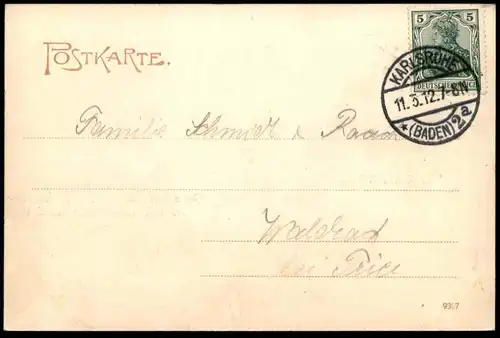 POSTKARTE.
5 5
DEUTSCHES REICH
KARLSRUHE
11.5.12.7-8N
*(BADEN) 2a
Familie Schmidt &
Waldrach
bei Trier